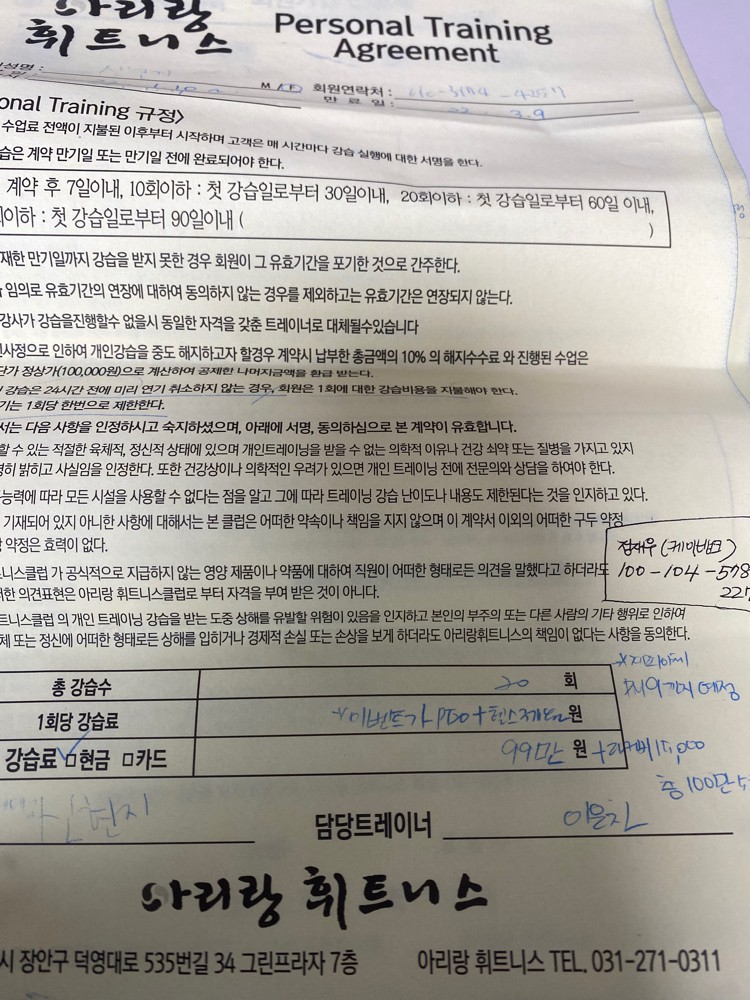 아리랑
휘트니스
Personal Training
Agreement
M / F 회원연락처 :
만 료 일 : 22. 3.9
onal Training 규정>
수업료 전액이 지불된 이후부터 시작하며 고객은 매 시간마다 강습 실행에 대한 서명을 한다.
습은 계약 만기일 또는 만기일 전에 완료되어야 한다.
계약 후 7일이내, 10회이하 : 첫 강습일로부터 30일이내, 20회이하 : 첫 강습일로부터 60일 이내,
이하 : 첫 강습일로부터 90일이내 ( )
재한 만기일까지 강습을 받지 못한 경우 회원이 그 유효기간을 포기한 것으로 간주한다.
임의로 유효기간의 연장에 대하여 동의하지 않는 경우를 제외하고는 유효기간은 연장되지 않는다.
강사가 강습을진행할수 없을시 동일한 자격을 갖춘 트레이너로 대체될수있습니다
사정으로 인하여 개인강습을 중도 해지하고자 할경우 계약시 납부한 총금액의 10% 의 해지수수료 와 진행된 수업은
단가 정상가(100,000원)으로 계산하여 공제한 나머지금액을 환급 받는다.
강습은 24시간 전에 미리 연기 취소하지 않는 경우, 회원은 1회에 대한 강습비용을 지불해야 한다.
기는 1회당 한번으로 제한한다.
서는 다음 사항을 인정하시고 숙지하셨으며, 아래에 서명, 동의하심으로 본 계약이 유효합니다.
할 수 있는 적절한 육체적, 정신적 상태에 있으며 개인트레이닝을 받을 수 없는 의학적 이유나 건강 쇠약 또는 질병을 가지고 있지
히 밝히고 사실임을 인정한다. 또한 건강상이나 의학적인 우려가 있으면 개인 트레이닝 전에 전문의와 상담을 하여야 한다.
능력에 따라 모든 시설을 사용할 수 없다는 점을 알고 그에 따라 트레이닝 강습 난이도나 내용도 제한된다는 것을 인지하고 있다.
기재되어 있지 아니한 사항에 대해서는 본 클럽은 어떠한 약속이나 책임을 지지 않으며 이 계약서 이외의 어떠한 구두 약정
약정은 효력이 없다.
트니스클럽 가 공식적으로 지급하지 않는 영양 제품이나 약품에 대하여 직원이 어떠한 형태로든 의견을 말했다고 하더라도
한 의견표현은 아리랑 휘트니스클럽로 부터 자격을 부여 받은 것이 아니다.
트니스클럽 의 개인 트레이닝 강습을 받는 도중 상해를 유발할 위험이 있음을 인지하고 본인의 부주의 또는 다른 사람의 기타 행위로 인하여
체 또는 정신에 어떠한 형태로든 상해를 입히거나 경제적 손실 또는 손상을 보게 하더라도 아리랑휘트니스의 책임이 없다는 사항을 동의한다.
정재우 (케이뱅크)
100-104-578
227
총 강습수 20 회
1회당 강습료 *이벤트가 PT20+헬스 원
강습료 □현금 □카드 99만 원
총 100만
박현지
담당트레이너 이윤지
아리랑 휘트니스
시 장안구 덕영대로 535번길 34 그린프라자 7층 아리랑 휘트니스 TEL. 031-271-0311